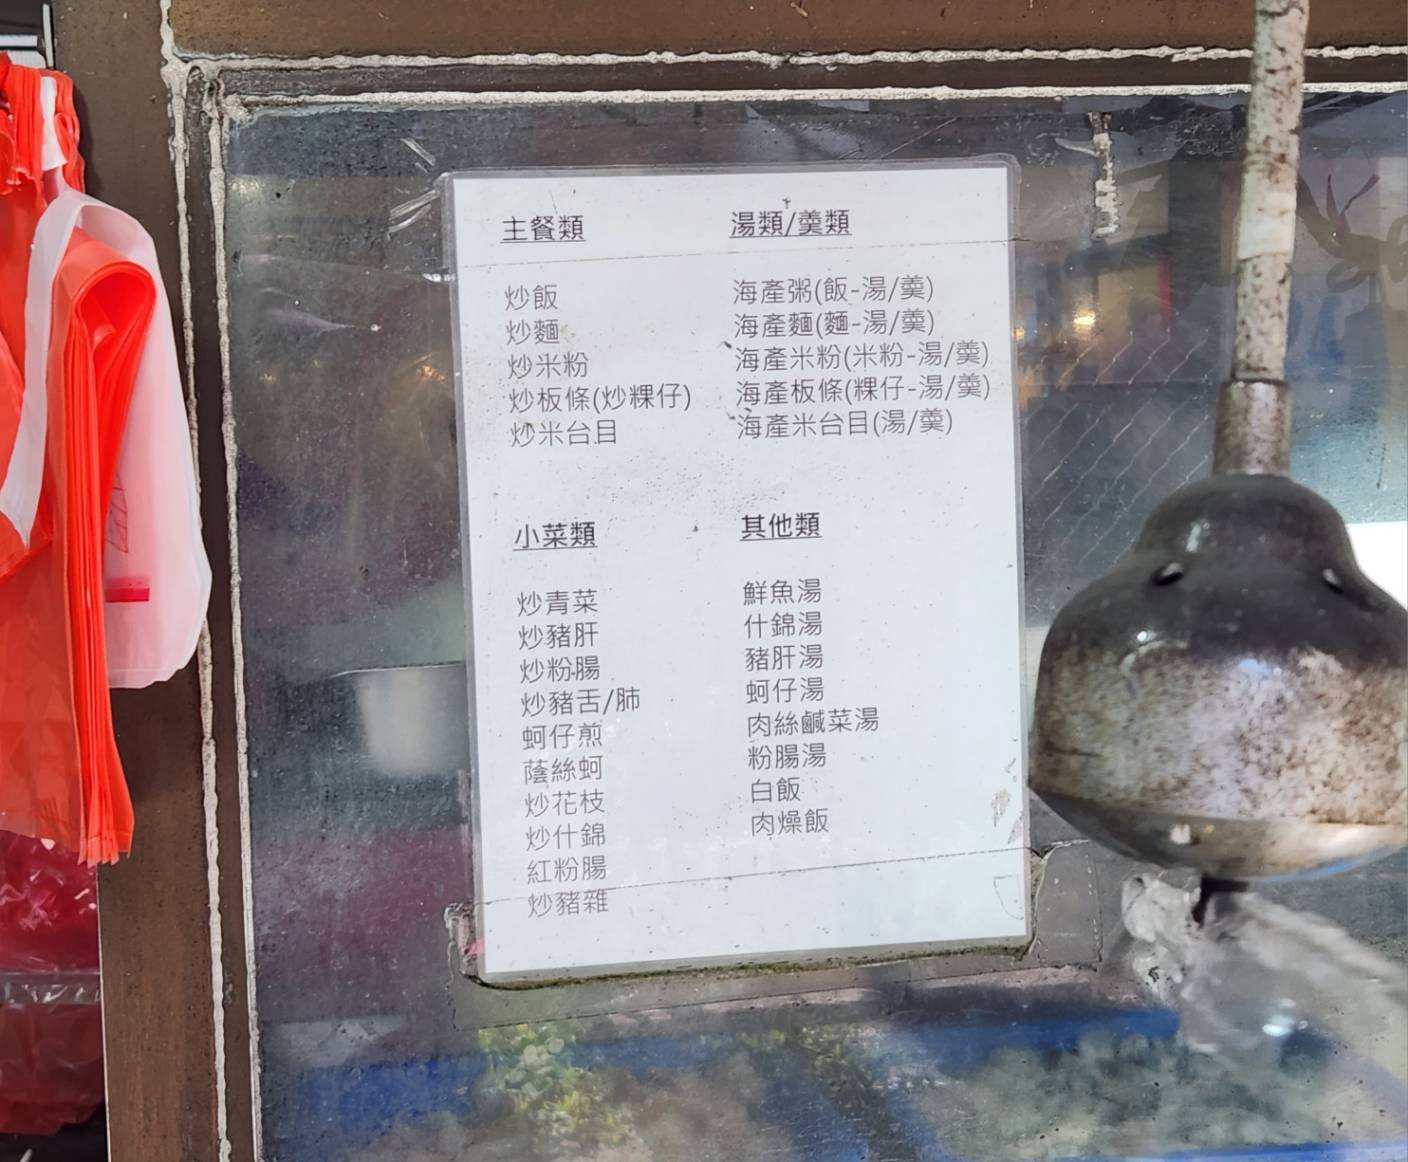 主餐類
炒飯
炒麵
炒米粉
炒板條(炒粿仔)
炒米台目
湯類/羹類
海產粥(飯-湯/羹)
海產麵(麵-湯/羹)
海產米粉(米粉-湯/羹)
海產板條(粿仔-湯/羹)
海產米台目(湯/羹)
小菜類
炒青菜
炒豬肝
炒粉腸
炒豬舌/肺
蚵仔煎
蔭絲蚵
炒花枝
炒什錦
紅粉腸
炒豬雜
其他類
鮮魚湯
什錦湯
豬肝湯
蚵仔湯
肉絲鹹菜湯
粉腸湯
白飯
肉燥飯